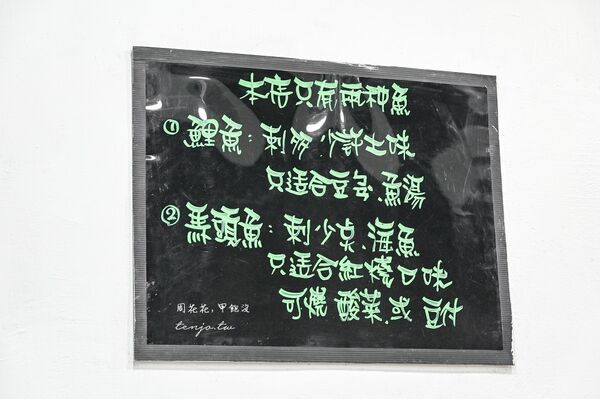 本店只有兩种魚
① 鯉魚：刺多 少許土味
只適合豆瓣.魚湯
② 馬頭魚：刺少点.海魚
只適合紅燒口味
可燒 酸菜.或 豆付
周花花，甲飽沒
tenjo.tw